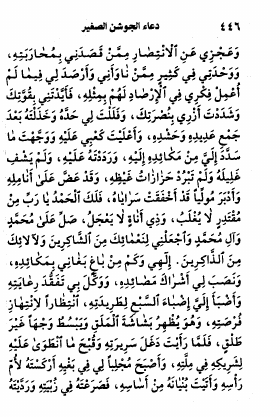 ٤٤٦ دعاء الجوشن الصغير
وَعَجْزِي عَنِ الْاِنْتِصَارِ مِمَّنْ قَصَدَنِي بِمُحَارَبَتِهِ،
وَوَحْدَتِي فِي كَثِيرٍ مِمَّنْ نَاوَانِي وَأَرْصَدَ لِي فِيمَا لَمْ
أُعْمِلْ فِكْرِي فِي الْإِرْصَادِ لَهُمْ بِمِثْلِهِ، فَأَيَّدْتَنِي بِقُوَّتِكَ
وَشَدَدْتَ أَزْرِي بِنُصْرَتِكَ، وَفَلَلْتَ لِي حَدَّهُ وَخَذَلْتَهُ بَعْدَ
جَمْعِ عَدِيدِهِ وَحَشْدِهِ، وَأَعْلَيْتَ كَعْبِي عَلَيْهِ وَوَجَّهْتَ مَا
سَدَّدَ إِلَيَّ مِنْ مَكَائِدِهِ إِلَيْهِ، وَرَدَدْتَهُ عَلَيْهِ، وَلَمْ يَشْفِ
غَلِيلَهُ وَلَمْ تَبْرُدْ حَزَازَاتُ غَيْظِهِ، وَقَدْ عَضَّ عَلَىٰ أَنَامِلِهِ
وَأَدْبَرَ مُوَلِّياً قَدْ أَخْفَقَتْ سَرَايَاهُ، فَلَكَ الْحَمْدُ يَا رَبِّ مِنْ
مُقْتَدِرٍ لَا يُغْلَبُ، وَذِي أَنَاةٍ لَا يَعْجَلُ، صَلِّ عَلَىٰ مُحَمَّدٍ
وَآلِ مُحَمَّدٍ وَاجْعَلْنِي لِنَعْمَائِكَ مِنَ الشَّاكِرِينَ وَلِآلَائِكَ
مِنَ الذَّاكِرِينَ. إِلَهِي وَكَمْ مِنْ بَاغٍ بَغَانِي بِمَكَائِدِهِ،
وَنَصَبَ لِي أَشْرَاكَ مَصَائِدِهِ، وَوَكَّلَ بِي تَفَقُّدَ رِعَايَتِهِ
وَأَضْبَأَ إِلَيَّ إِضْبَاءَ السَّبُعِ لِطَرِيدَتِهِ، انْتِظَاراً لِانْتِهَازِ
فُرْصَتِهِ، وَهُوَ يُظْهِرُ بَشَاشَةَ الْمَلَقِ وَيَبْسُطُ وَجْهاً غَيْرَ
طَلْقٍ، فَلَمَّا رَأَيْتَ دَغَلَ سَرِيرَتِهِ وَقُبْحَ مَا انْطَوَىٰ عَلَيْهِ
لِشَرِيكِهِ فِي مِلَّتِهِ، وَأَصْبَحَ مُجْلِباً لِي فِي بَغْيِهِ أَرْكَسْتَهُ لِأُمِّ
رَأْسِهِ وَأَتَيْتَ بُنْيَانَهُ مِنْ أَسَاسِهِ، فَصَرَعْتَهُ فِي زُبْيَتِهِ وَرَدَّيْتَهُ